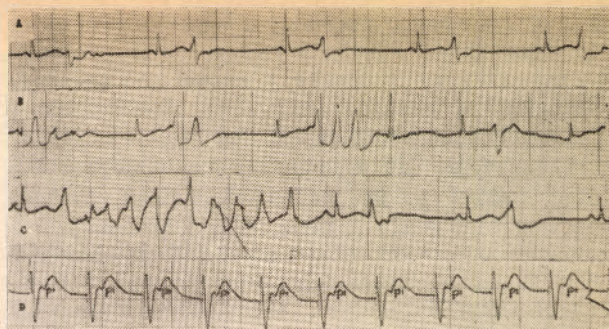 A
B
C
P' P' P' P' P' P' P' P' P' P'
D